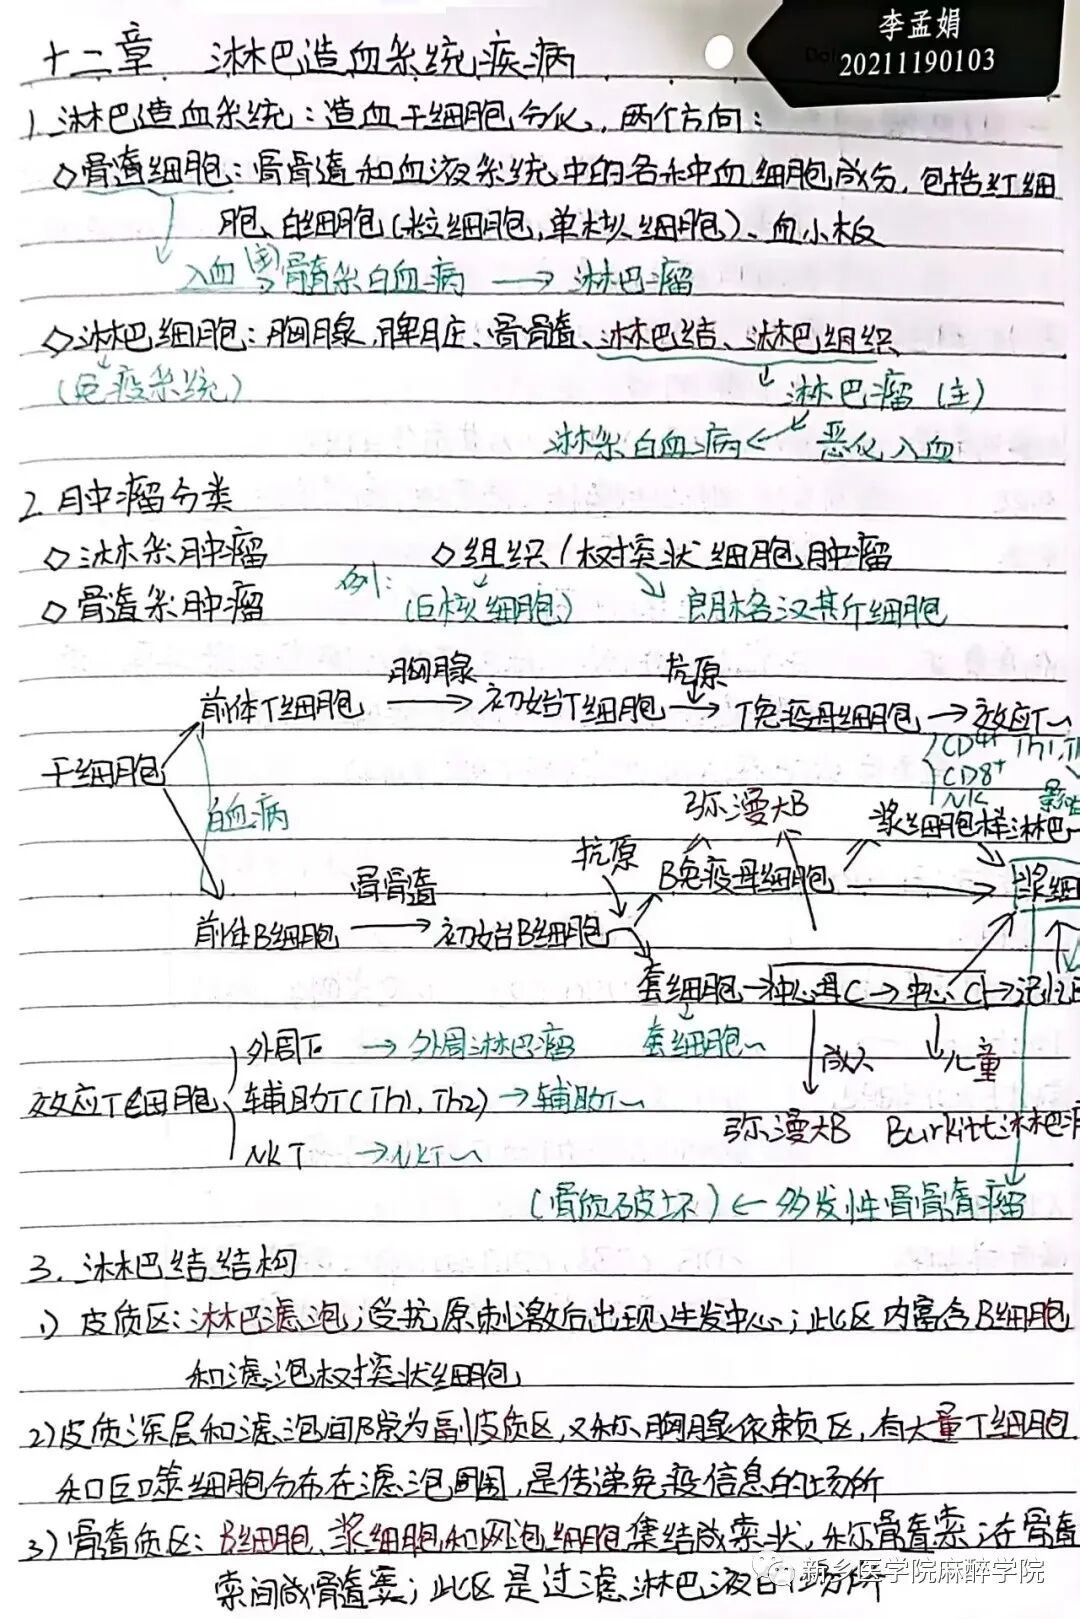 李孟娟
20211190103
十二章 淋巴造血系统疾病
1. 淋巴造血系统：造血干细胞分化，两个方向：
◇骨髓细胞：骨髓和血液系统中的各种血细胞成分，包括红细
胞、白细胞（粒细胞，单核细胞）、血小板
入血 骨髓系白血病 → 淋巴瘤
◇淋巴细胞：胸腺，脾脏、骨髓、淋巴结、淋巴组织
(免疫系统) 淋巴瘤（主）
淋系白血病 ← 恶化入血
2. 肿瘤分类
◇淋系肿瘤 ◇组织/树突状细胞肿瘤
◇骨髓系肿瘤 例：(巨核细胞) 朗格汉斯细胞
胸腺 抗原
前体T细胞 → 初始T细胞 → T免疫母细胞 → 效应T~
CD4+ Th1,
干细胞 CD8+
NK
白血病 弥漫大B 浆细胞样淋巴~
抗原
骨髓 B免疫母细胞 浆细
前体B细胞 → 初始B细胞
套细胞→中心母C→中心C→记忆
外周T → 外周淋巴瘤 套细胞~ 成人 儿童
效应T细胞 辅助T(Th1,Th2) → 辅助T~
弥漫大B Burkitt淋巴
NKT → NKT~
(骨质破坏) ← 多发性骨髓瘤
3. 淋巴结结构
1) 皮质区：淋巴滤泡，受抗原刺激后出现生发中心；此区内富含B细胞
和滤泡树突状细胞
2) 皮质深层和滤泡间隙为副皮质区，又称胸腺依赖区，有大量T细胞
和巨噬细胞分布在滤泡周围，是传递免疫信息的场所
3) 骨髓质区：B细胞、浆细胞和网泡细胞集结成索状，称骨髓索；在骨髓
索间成骨髓窦；此区是过滤淋巴液的场所
新乡医学院麻醉学院